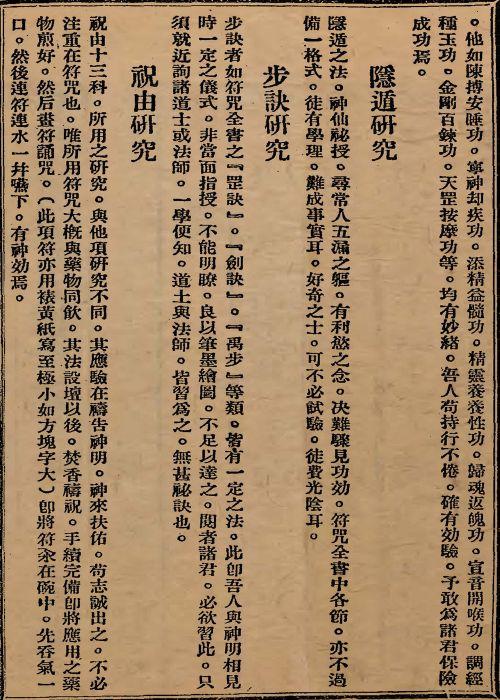 。他如陳摶安睡功。寧神却疾功。添精益髓功。精靈養養性功。歸魂返魄功。宣音開喉功。調經
種玉功。金剛百鍊功。天罡按摩功等。均有妙緒。吾人苟持行不倦。確有効驗。予敢爲諸君保險
成功焉。
隱遁研究
隱遁之法。神仙秘授。尋常人五漏之軀。有利慾之念。决難驟見功効。符咒全書中各節。亦不過
備一格式。徒有學理。難成事實耳。好奇之士。可不必試驗。徒費光陰耳。
步訣研究
步訣者如符咒全書之『罡訣』。『劍訣』。『禹步』等類。皆有一定之法。此卽吾人與神明相見
時一定之儀式。非當面指授。不能明瞭。良以筆墨繪圖。不足以達之。閱者諸君。必欲習此。只
須就近詢諸道士或法師。一學便知。道士與法師。皆習爲之。無甚祕訣也。
祝由研究
祝由十三科。所用之研究。與他項研究不同。其應驗在禱吿神明。神來扶佑。苟志誠出之。不必
注重在符咒也。唯所用符咒大槪與藥物同飲。其法設壇以後。焚香禱祝。手續完備卽將應用之藥
物煎好。然后畫符誦咒。（此項符亦用裱黃紙寫至極小如方塊字大）卽將符汆在碗中。先吞氣一
口。然後連符連水一幷嚥下。有神効焉。